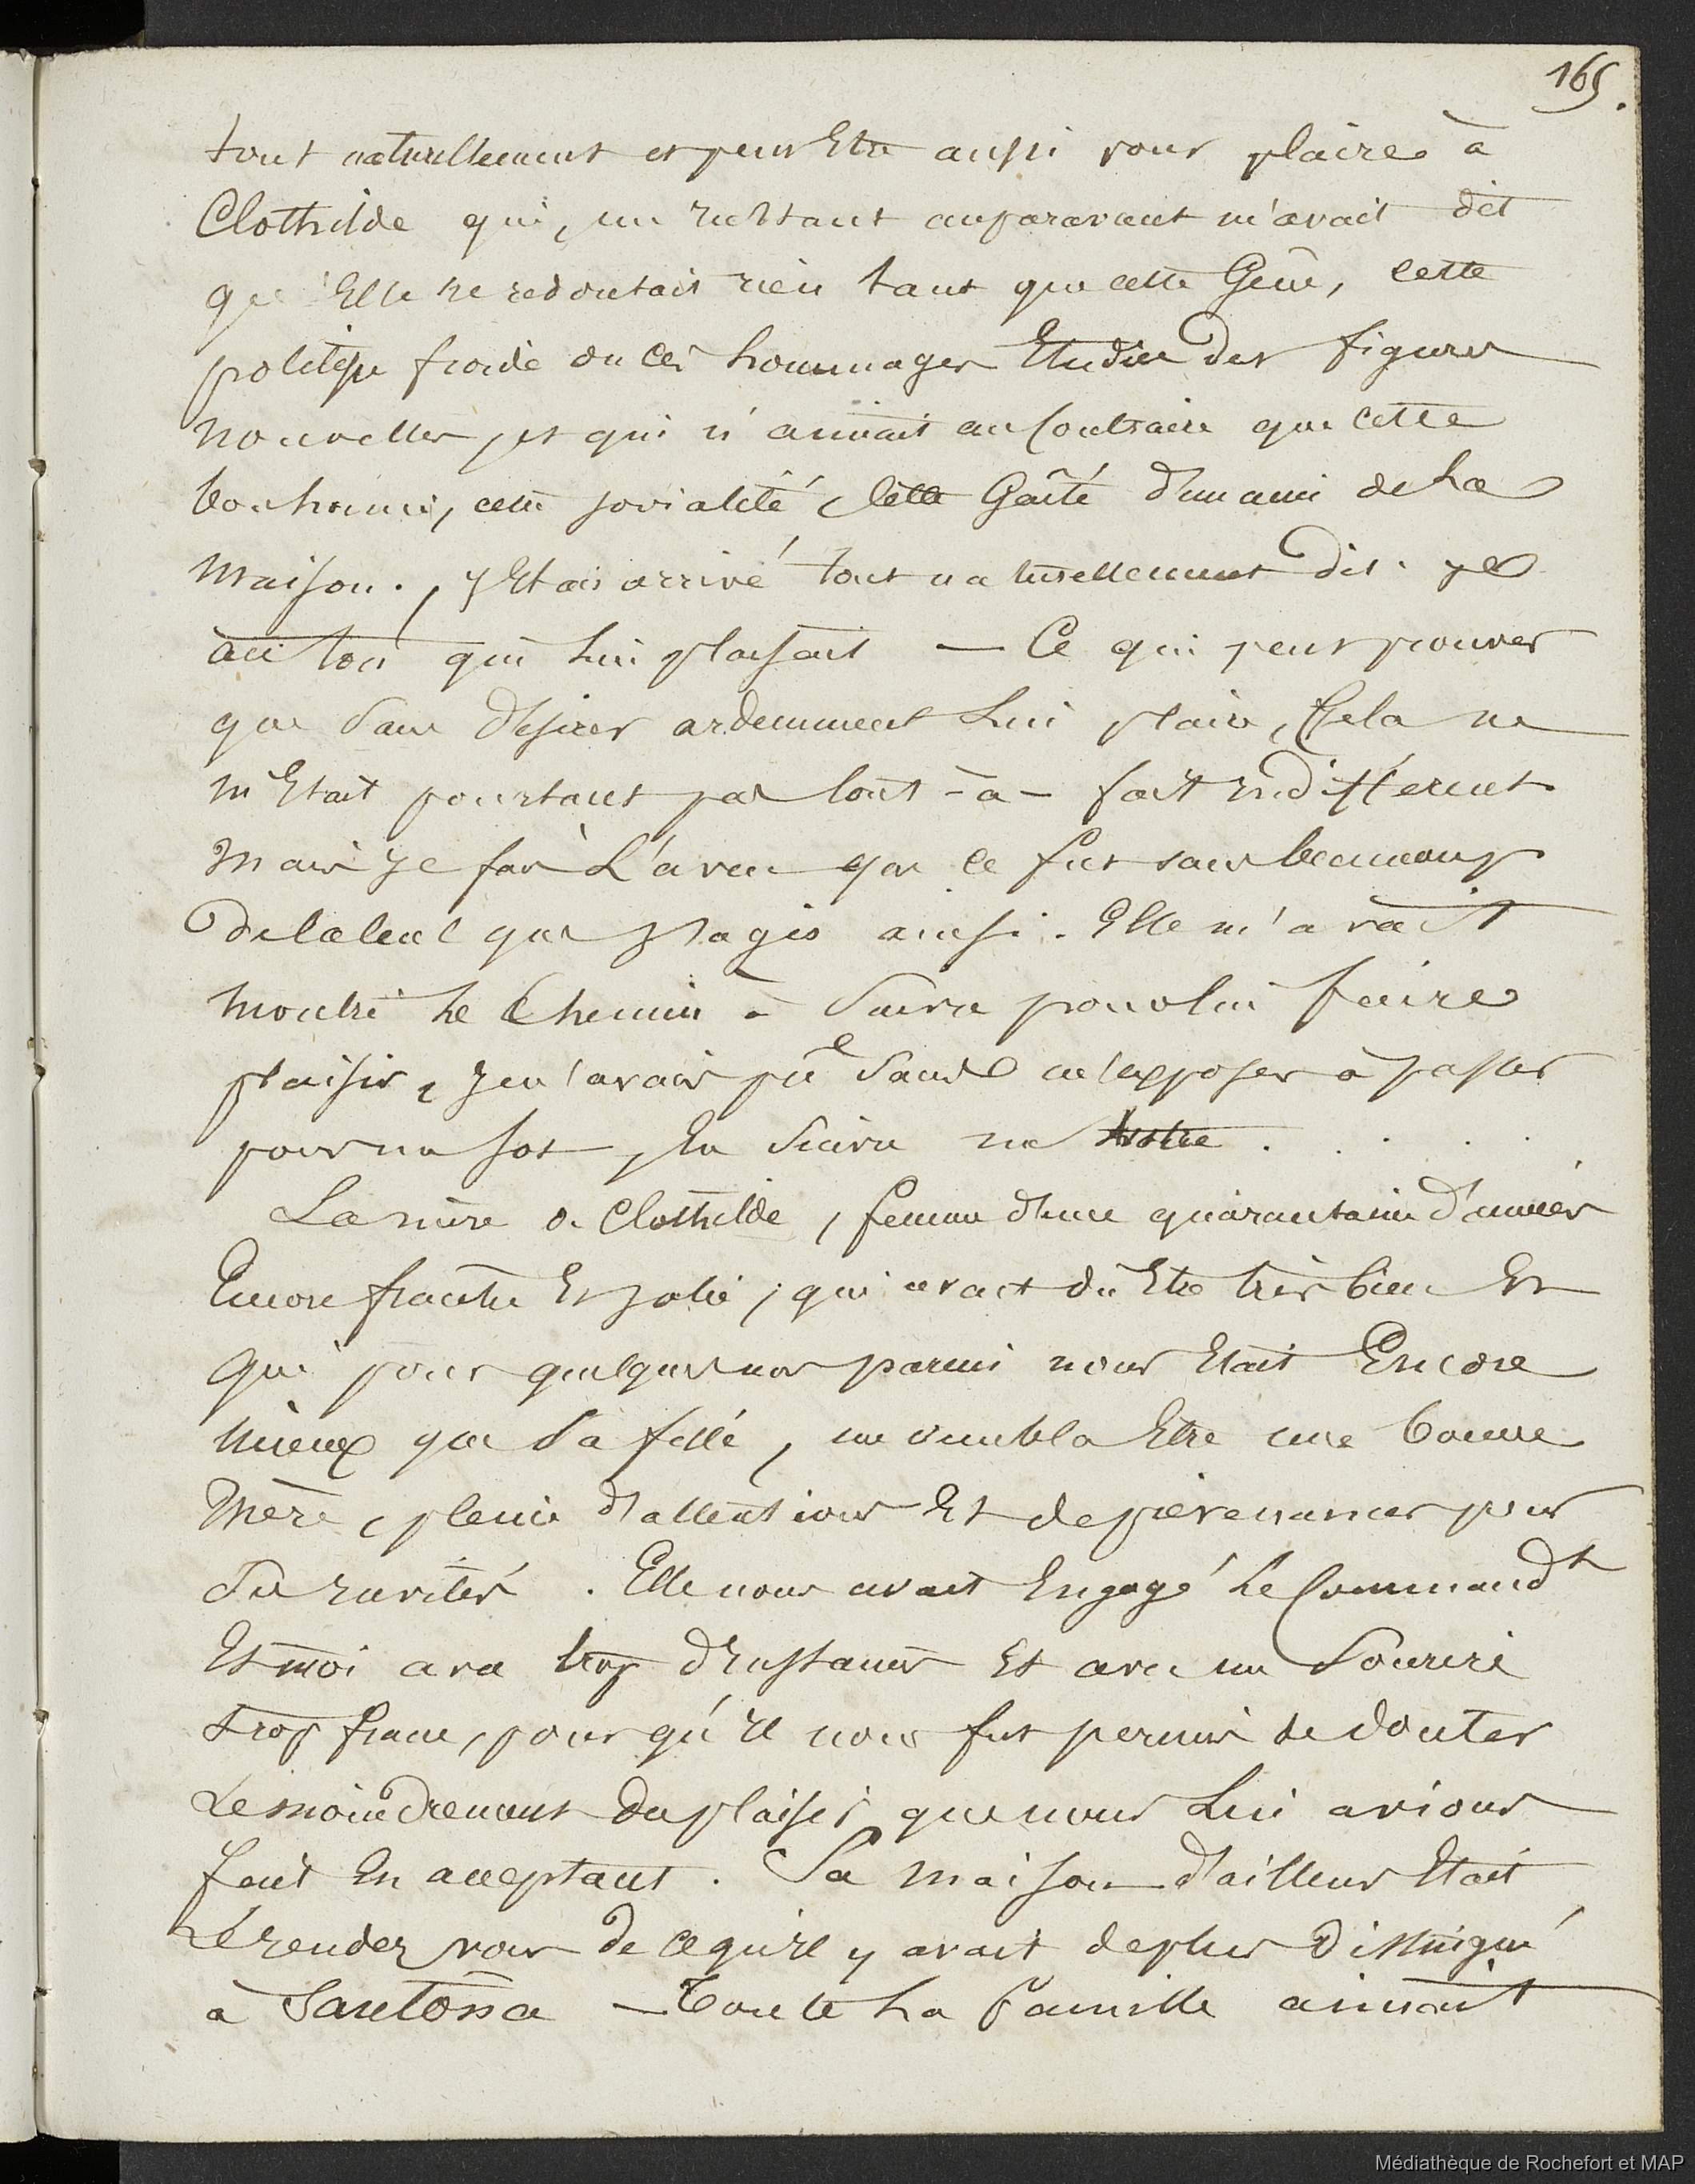 165.
tout naturellement et peut Etre aussi pour plaire à
Clothilde qui, un Instant auparavant m'avait dit
qu'Elle ne redoutait rien tant que cette Gêne, cette
politesse froide ou ces hommages Etudiés des figures
nouvelles, et qui n'aimait au Contraire que cette
bonhomie, cette jovialité, cette Gaîté d'un ami de la
Maison. J'Etais arrivé tout naturellement dis-je
au ton qui lui plaisait — Ce qui peut prouver
que Sans désirer ardemment lui plaire, Cela ne
m'Etait pourtant pas tout-à-fait Indifférent
Mais Je fais L'aveu que ce fut sans beaucoup
de talent que J'agis ainsi. Elle m'avait
montré le Chemin à Suivre pour lui faire
plaisir, Je n'avais pû Sans m'exposer à passer
pour un sot, En Suivre un Autre . . . . .
La mère de Clothilde, femme d'une quarantaine d'années
Encore fraiche Et jolie, qui avait dû Etre très bien Et
qui pour quelques uns parmi nous Etait Encore
mieux que Sa fille, me sembla Etre une bonne
Mère, pleine d'attentions Et de prévenances pour
Ses Invités. Elle nous avait Engagé le Commandt
Et moi avec trop d'Instances Et avec un Sourire
trop franc, pour qu'Il nous fut permis de douter
Le moindrement du plaisir que nous Lui avions
fait En acceptant. Sa maison d'ailleurs Etait
Le rendez vous de ce qu'Il y avait de plus Distingué
à Santoña — Toute la famille aimait
Médiathèque de Rochefort et MAP